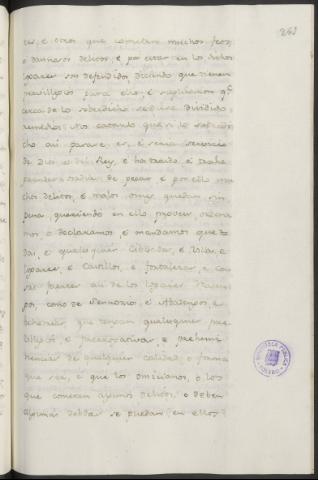 261
ces, e otros que cometen muchos feos,
o dannosos delitos, e por estar en los dichos
logares son defendidos, diciendo que tienen
previllejos para ello, e suplicaron que
cerca de lo sobredicho se diese devido
remedio: Nos catando que si lo sobredi
cho asi pasase, es, e seria deservicio
de Dios, e del Rey, e ha traido, e trahe
osadia de pecar, e por ello mu
chos delitos, e malos omes quedan sin
pena, queriendo en ello proveer, ordena
mos, e declaramos, e mandamos que to
das, e qualesquier Cibdades, e Villas, e
logares, e Castillos, e fortalezas, e
asi de los logares
como de Sennorio, e Abadengos, e
behetrias, que tengan qualesquier pre
villejos, e prerrogativas, e prehemi
nencias de qualquier calidad, o forma
que sea, e que los omicianos, o los
que cometen algunos delitos, o deben
algunas debdas se puedan en ellos
BIBLIOTECA PUBLICA
TOLEDO